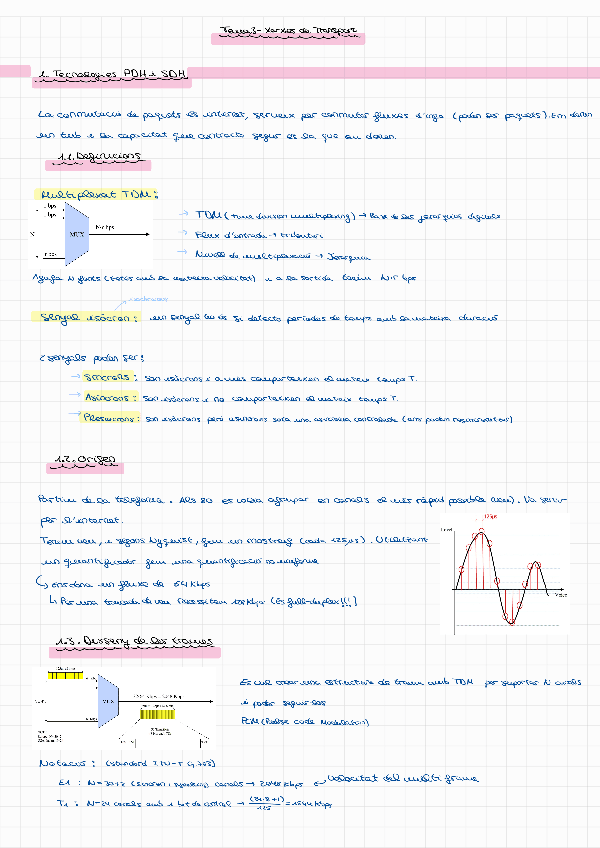 Tema 3- Xarxes de Transport
1. Tecnologies PDH i SDH
La commutació de paquets és internet, serveix per commutar fluxes d'info (poden ser paquets). Em donen
un tub i la capacitat que contracto segur és la que em donen.
1.1. Definicions
Multiplexat TDM:
→ TDM (time division multiplexing) → Base de les jerarquies digitals
→ Flux d'entrada → tributari
→ Nivells de multiplexació → Jerarquia
bps
bps
N
MUX
N·r bps
r bps
Agafa N fluxes (totes amb la mateixa velocitat) i a la sortida tenim N·r bps
Senyal isòcron: un senyal on es detecta períodes de temps amb la mateixa duració
2 senyals poden ser:
→ Síncrons: són isòcrons i a més comparteixen el mateix temps T.
→ Asíncrons: són isòcrons i no comparteixen el mateix temps T.
→ Plesiòcrons: són isòcrons però asíncrons sota una asincronia controlada (ens poden resincronitzar)
1.2. Origen
Partim de la telefonia. Als 80 es volia agrupar en canals el més ràpid possible
per l'internet.
Tenim veu, i segons Nyquist, fem un mostreig (cada 125μs). Utilitzant
un quantificador fem una quantificació no uniforme
↳ ens dona un fluxe de 64 kbps
↳ Per una trucada de veu necessitem 128 kbps (és full-duplex!!!)
125μs
Level
Voice
1.3. Disseny de les trames
MUX
Es vol crear una estructura de trama amb TDM per suportar N canals
i poder seguir-los
PCM (Pulse code Modulation)
Notació: (standard ITU-T G.703)
E1: N=30+2 canals → 2048 kbps ← Velocitat del multiframe
T1: N=24 canals amb 1 bit de control → (24·8+1)/125 = 1544 kbps